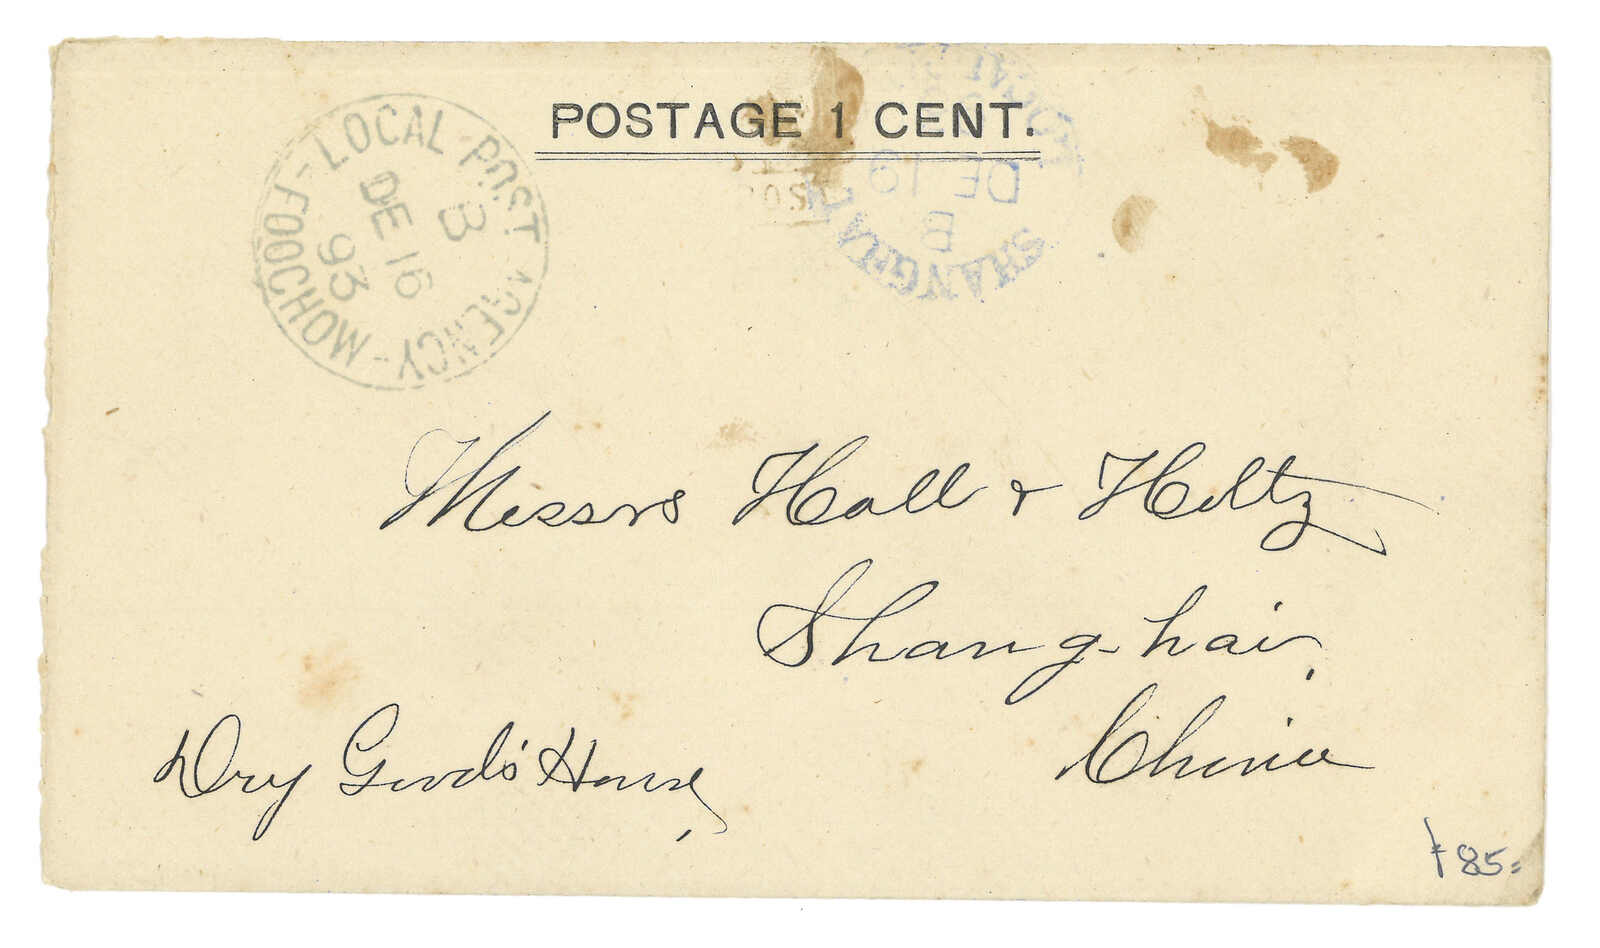 POSTAGE 1 CENT.
LOCAL POST AGENCY - FOOCHOW -
B
DE 16
93
SHANGHAI LOCAL
B
DE 19
Messrs Hall & Holtz
Shang-hai,
China
Dry Good's House,
85=